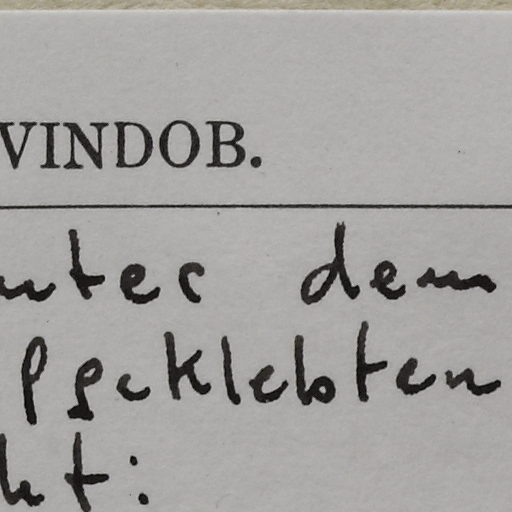 VINDOB.
unter dem
fgeklebten
kt: